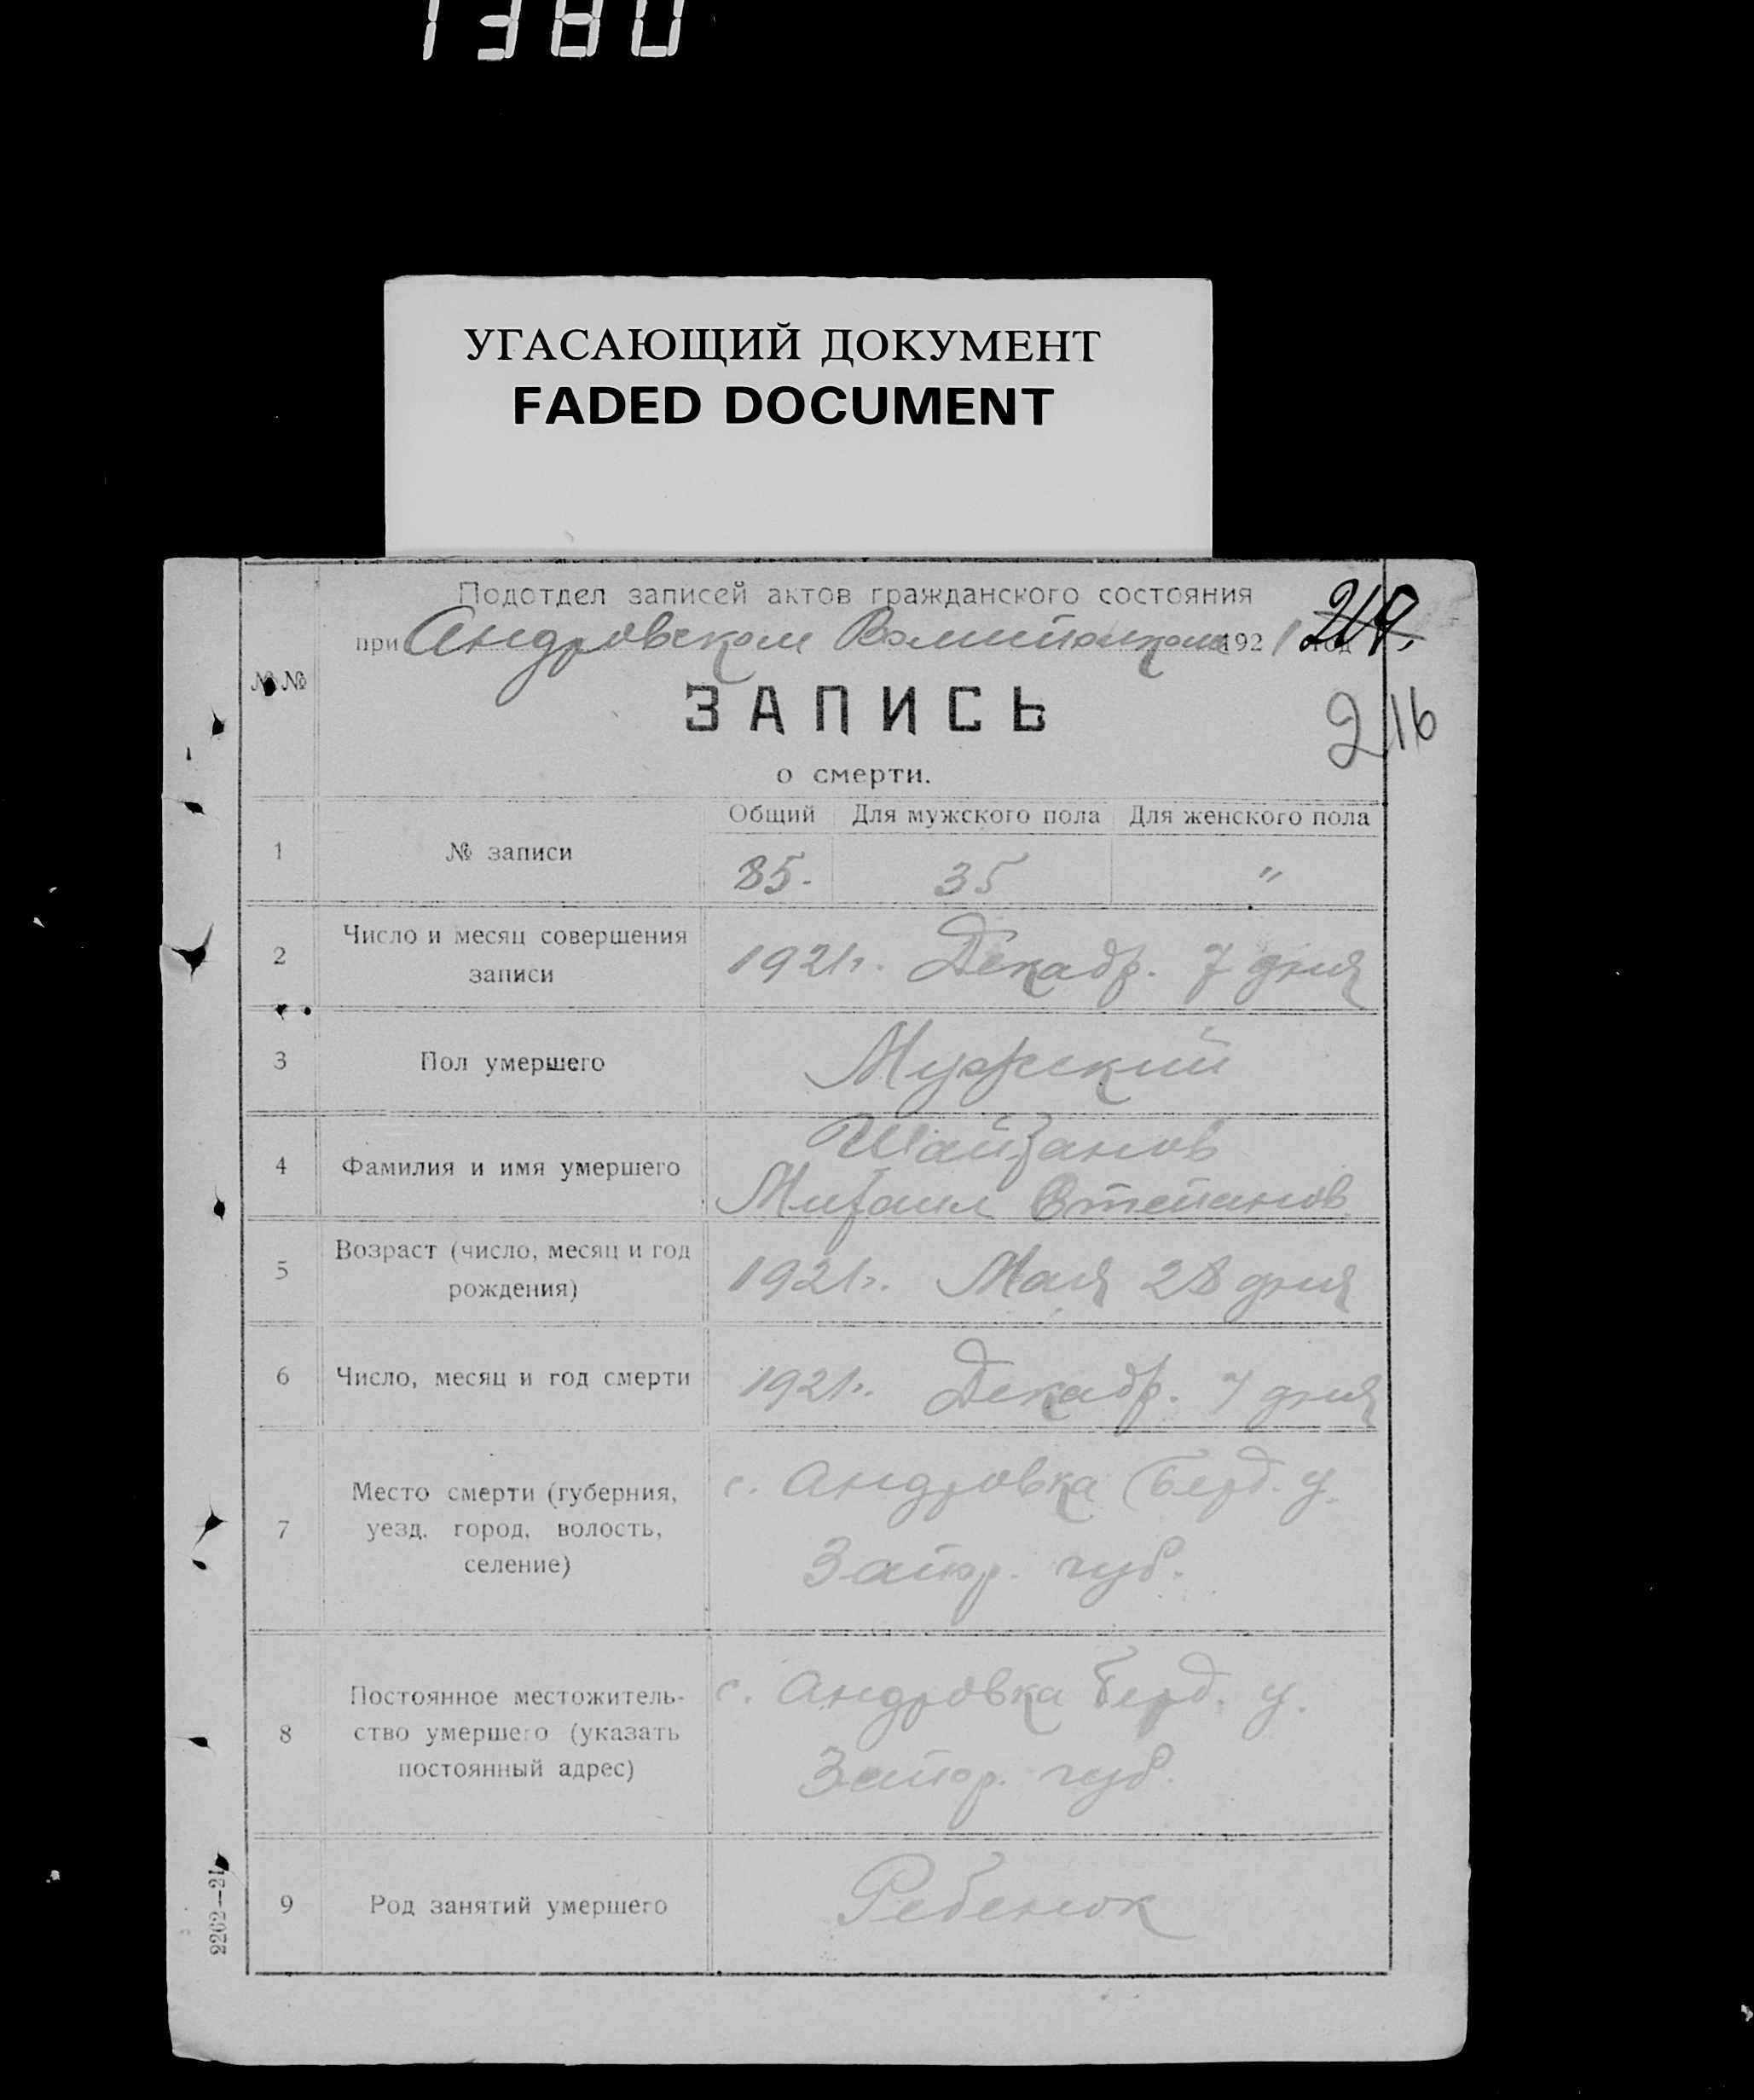 1380
УГАСАЮЩИЙ ДОКУМЕНТ
FADED DOCUMENT
Подотдел записей актов гражданского состояния
при Андровском Волисполкоме 1921 год
214.
№№
ЗАПИСЬ
216
о смерти.
Общий Для мужского пола Для женского пола
1 № записи 85. 35 "
2 Число и месяц совершения
записи
1921г. Декабр. 7 дня
3 Пол умершего Мужский
4 Фамилия и имя умершего
Михаил Степанов
5 Возраст (число, месяц и год
рождения)
1921г. Мая 28 дня
6 Число, месяц и год смерти 1921г. Декабр. 7 дня
7 Место смерти (губерния,
уезд, город, волость,
селение)
с. Андровка Берд. у.
Запор. губ.
8 Постоянное местожитель-
ство умершего (указать
постоянный адрес)
с. Андровка Берд. у.
Запор. губ.
9 Род занятий умершего Ребенок
2262—21